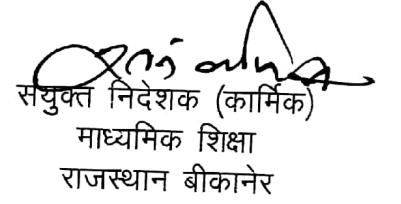 संयुक्त निदेशक (कार्मिक)
माध्यमिक शिक्षा
राजस्थान बीकानेर